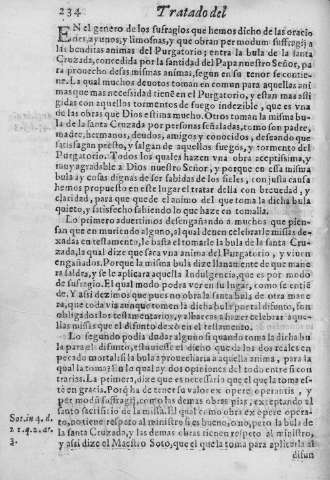 234 Tratado del
EN el genero de los sufragios que hemos dicho de las oracio
nes, ayunos, y limosnas, y que obran per modum suffragij a
las benditas animas del Purgatorio; entra la bula de la santa
Cruzada, concedida por la santidad del Papa nuestro Señor, pa
ra prouecho desas mismas animas, segun en su tenor se contie-
ne. La qual muchos deuotos toman en comun para aquellas ani
mas que mas necesidad tienẽ en el Purgatorio, y estan mas afli
gidas con aquellos tormentos de fuego indezible, que es vna
de las obras que Dios estima mucho. Otros toman la misma bu-
la de la santa Cruzada por personas señaladas, como son padre,
madre, hermanos, deudos, amigos y conocidos, deseando que
satisfagan presto, y salgan de aquellos fuegos, y tormento del
Purgatorio. Todos los quales hazen vna obra aceptissima, y
muy agradable a Dios nuestro Señor, y porque en esta misma
bula ay cosas dignas de ser sabidas de los fieles, con justa causa
hemos propuesto en este lugar el tratar della con breuedad, y
claridad, para que quede el animo del que toma la dicha bula
quieto, y satisfecho sabiendo lo que haze en tomalla.
Lo primero aduertimos desengañando a muchos que pien-
san que en muriendo alguno, al qual deuen celebrarle missas de-
xadas en testamento, le basta el tomarle la bula de la santa Cru-
zada, la qual dize que saca vna anima del Purgatorio, y viuen
engañados. Porque la misma bula dize llanamente de que mane
ra saldra, y se le aplicara aquella Indulgencia, que es por modo
de sufragio. El qual modo podra ver en su lugar, como se entiẽ
de. Y asi dezimos que pues no obra la santa bula de otra mane
ra, que toda via aunque tomen la dicha bula por tal difunto, son
obligados los testamentarios, y albaceas a hazer celebrar aque-
llas missas que el difunto dexò en el testamento.
Lo segundo podia dudar alguno si quando toma la dicha bu
la para el difunto, estuuiesse el dicho que da los dos reales en
pecado mortal si la bula aprouechara a aquella anima, para la
qual la toma? En lo qual ay dos opiniones del todo entre si con
trarias. La primera, dize que es necessario que el que la toma es-
tè en gracia. Porq̃ ha de tener su valor ex opere operantis, y
per modũ suffragij, como las demas obras pias, exceptando el
santo sacrificio de la missa. El qual como obra ex opere opera-
to, no tiene respeto al ministro si es bueno, o no, pero la bula de
la santa Cruzada, y las demas obras tienen respeto al ministro,
y assi dize el Maestro Soto, que el que la toma para aplicarla al
difun
Sot. in 4. d.
21. q. 2. ar.
3.